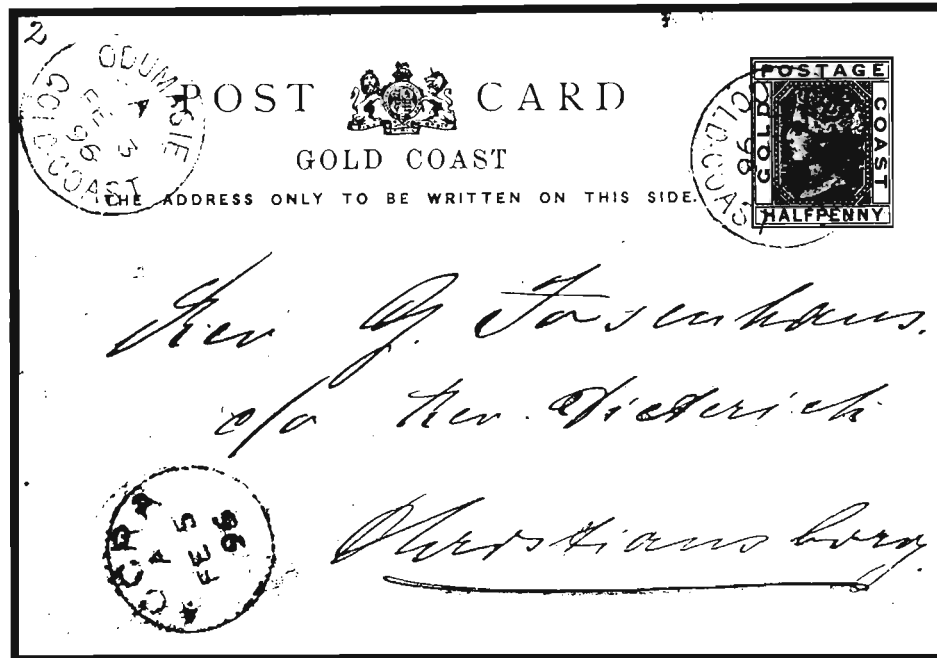 2
ODUMASIE
A
FE 3
96
GOLD COAST
POST CARD
GOLD COAST
THE ADDRESS ONLY TO BE WRITTEN ON THIS SIDE.
POSTAGE
GOLD
COAST
HALFPENNY
GOLD COAST
96
Rev G. Josenhans.
c/o Rev. Dieterich
Christiansborg.
ACCRA
A
FE 5
96